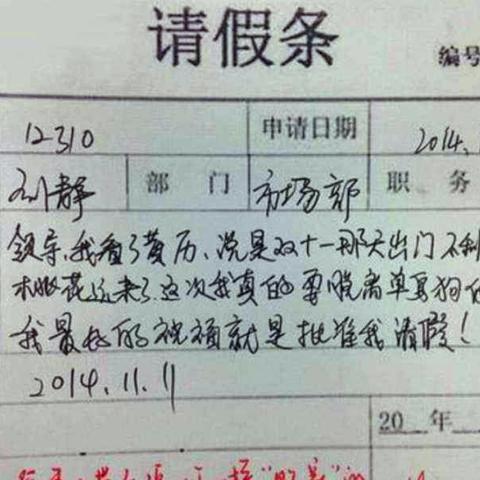 请假条
编号
12310 申请日期 2014.
刘静 部门 市场部 职务
领导,我看了黄历、说是双十一那天出门不利
桃花运来了.这次我真的要脱离单身狗
我最好的祝福就是批准我请假!
2014.11.11
20 年